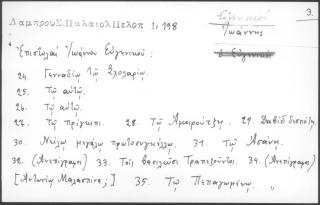 3.
Λάμπρου Σ. Παλαιολ Πελοπ 1, 198
Εὐγενικοῦ
Ἰωάννης
ὁ Εὐγενικὸς
Ἐπιστολαὶ Ἰωάννου Εὐγενικοῦ:
24. Γενναδίῳ τῷ Σχολαρίῳ.
25. Τῷ αὐτῷ.
26. Τῷ αὐτῷ.
27. Τῷ πρίγκιπι. 28. Τῷ Ἀμοιρούτζῃ. 29. Δαβὶδ δεσπότῃ
30. Νείλῳ μεγάλῳ πρωτοσυγκέλλῳ. 31. Τῷ Ἀσάνῃ.
32. (Ἀνεπίγραφος) 33. Τοῖς βασιλεῦσι Τραπεζοῦντος. 34. (Ἀνεπίγραφος)
[Ἀντωνίῳ Μαλασπίνᾳ;] 35. Τῷ Πεπαγωμένῳ. "